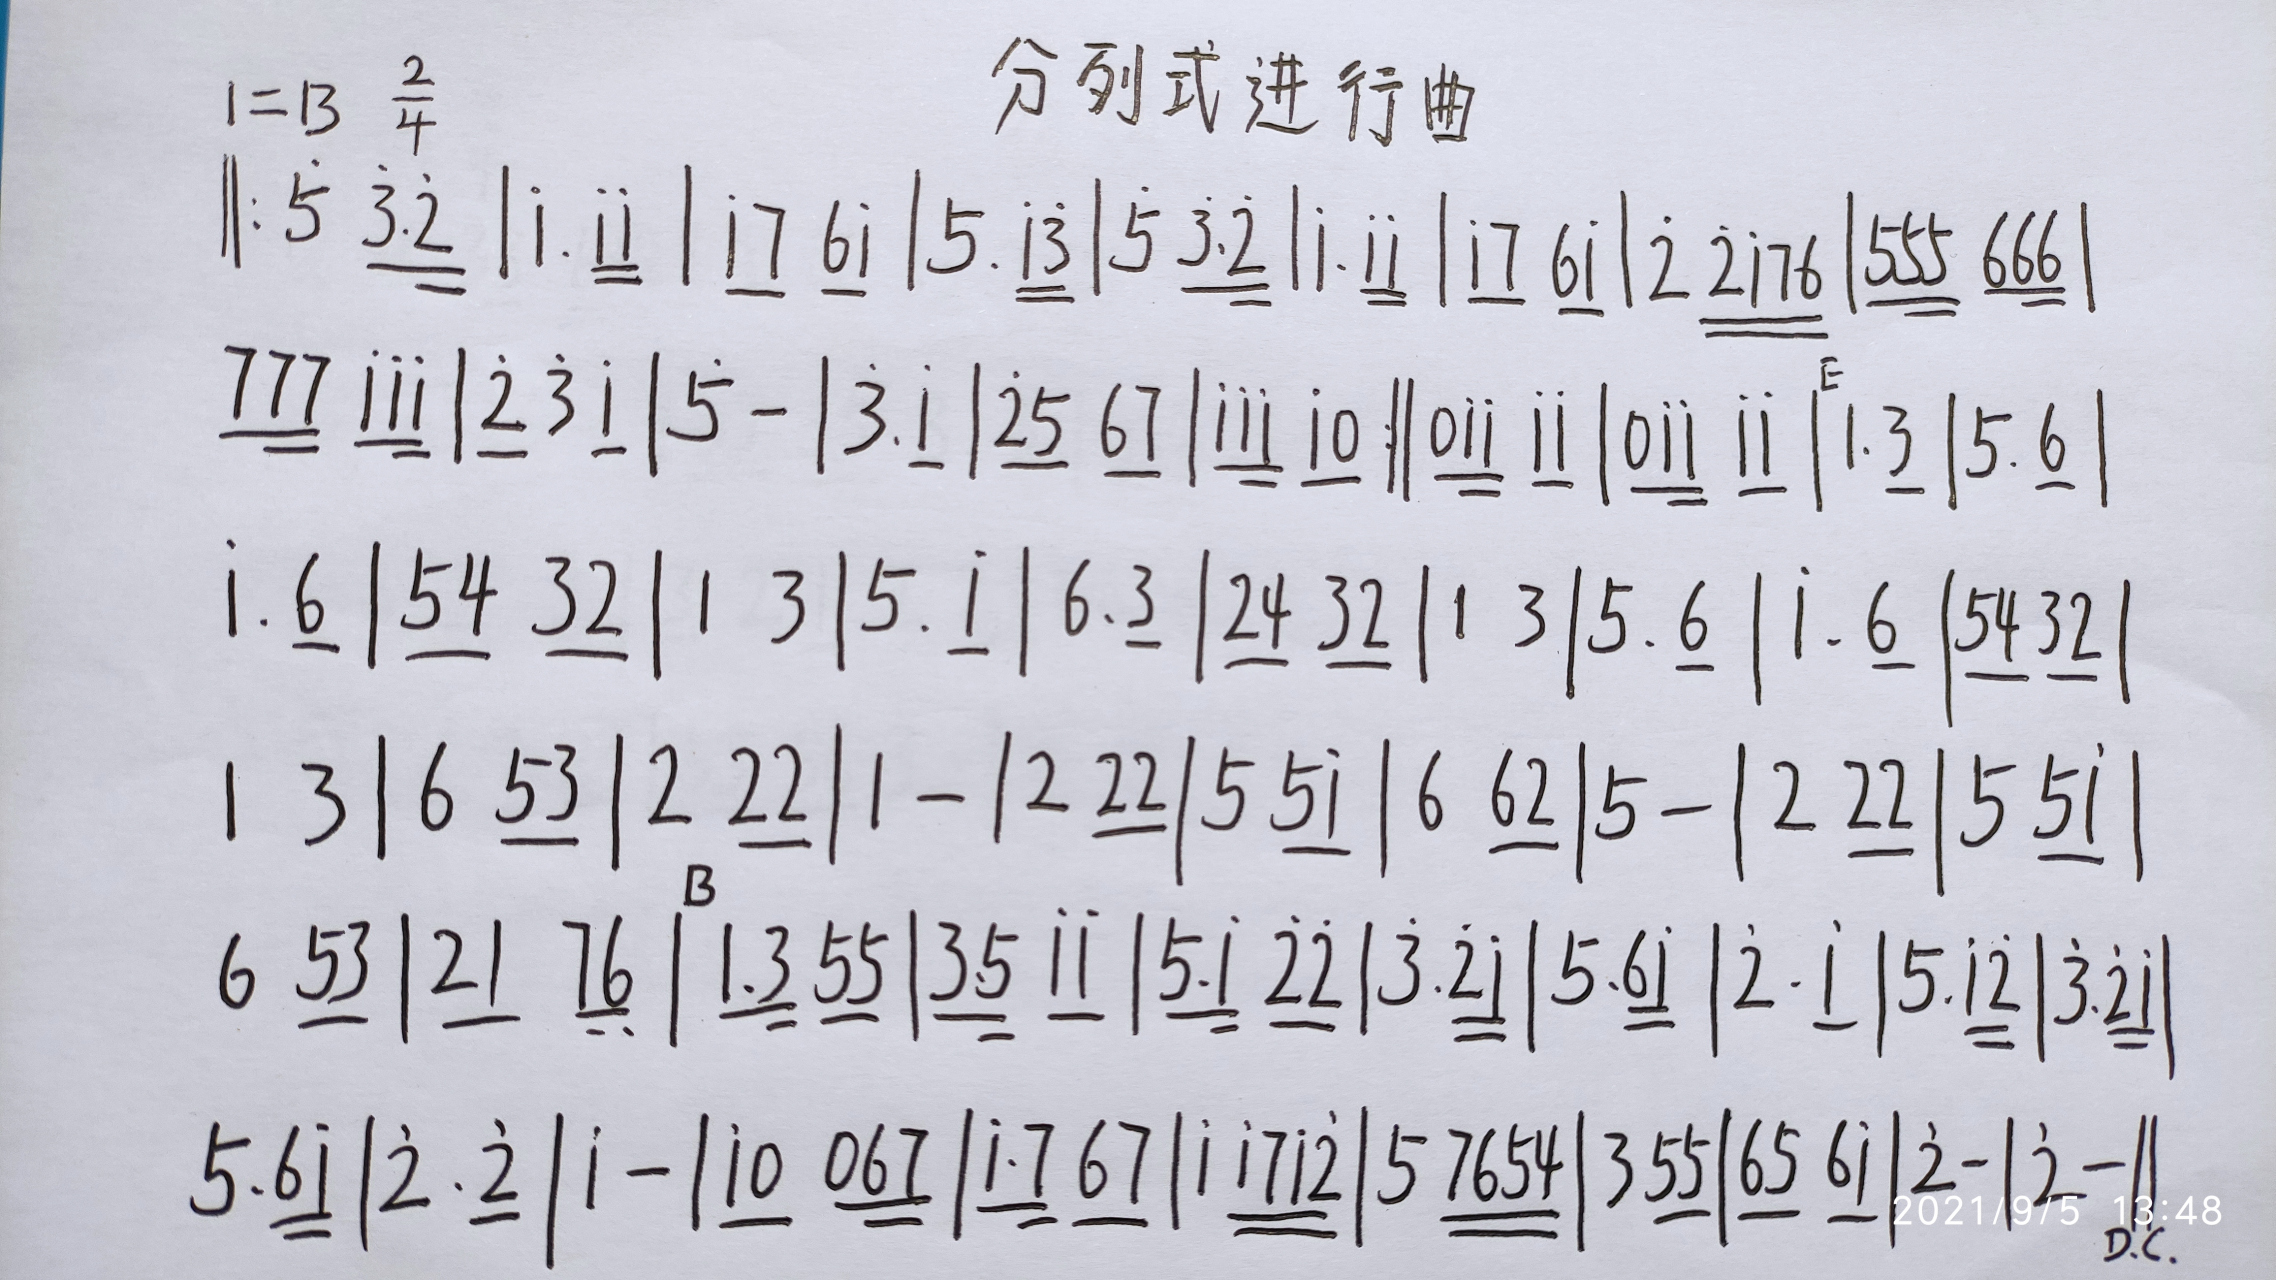 分列式进行曲
1=B 2/4
‖: 5̇ 3̇.2̇ | i. i i | i 7 6 i | 5. i 3̇ | 5̇ 3̇.2̇ | i. i i | i 7 6 i | 2̇ 2̇ i 7 6 | 5 5 5 6 6 6 |
7 7 7 i i i | 2̇ 3̇ i | 5̇ - | 3̇. i | 2̇ 5 6 7 | i i i i 0 :‖ 0 i i i i | 0 i i i i | E 1. 3 | 5. 6 |
i. 6 | 5 4 3 2 | 1 3 | 5. i | 6. 3 | 2 4 3 2 | 1 3 | 5. 6 | i. 6 | 5 4 3 2 |
1 3 | 6 5 3 | 2 2 2 | 1 - | 2 2 2 | 5 5 i | 6 6 2 | 5 - | 2 2 2 | 5 5 i |
6 5 3 | 2 1 7̣ 6̣ | B 1. 3 5 5 | 3.5 i i | 5. i 2̇ 2̇ | 3̇. 2̇ i | 5. 6 i | 2̇. i | 5. i 2̇ | 3̇. 2̇ i |
5. 6 i | 2̇. 2̇ | i - | i 0 0 6 7 | i. 7 6 7 | i i 7 i 2̇ | 5 7 6 5 4 | 3 5 5 | 6 5 6 i | 2̇ - | 2̇ - ‖
D.C.
2021/9/5 13:48